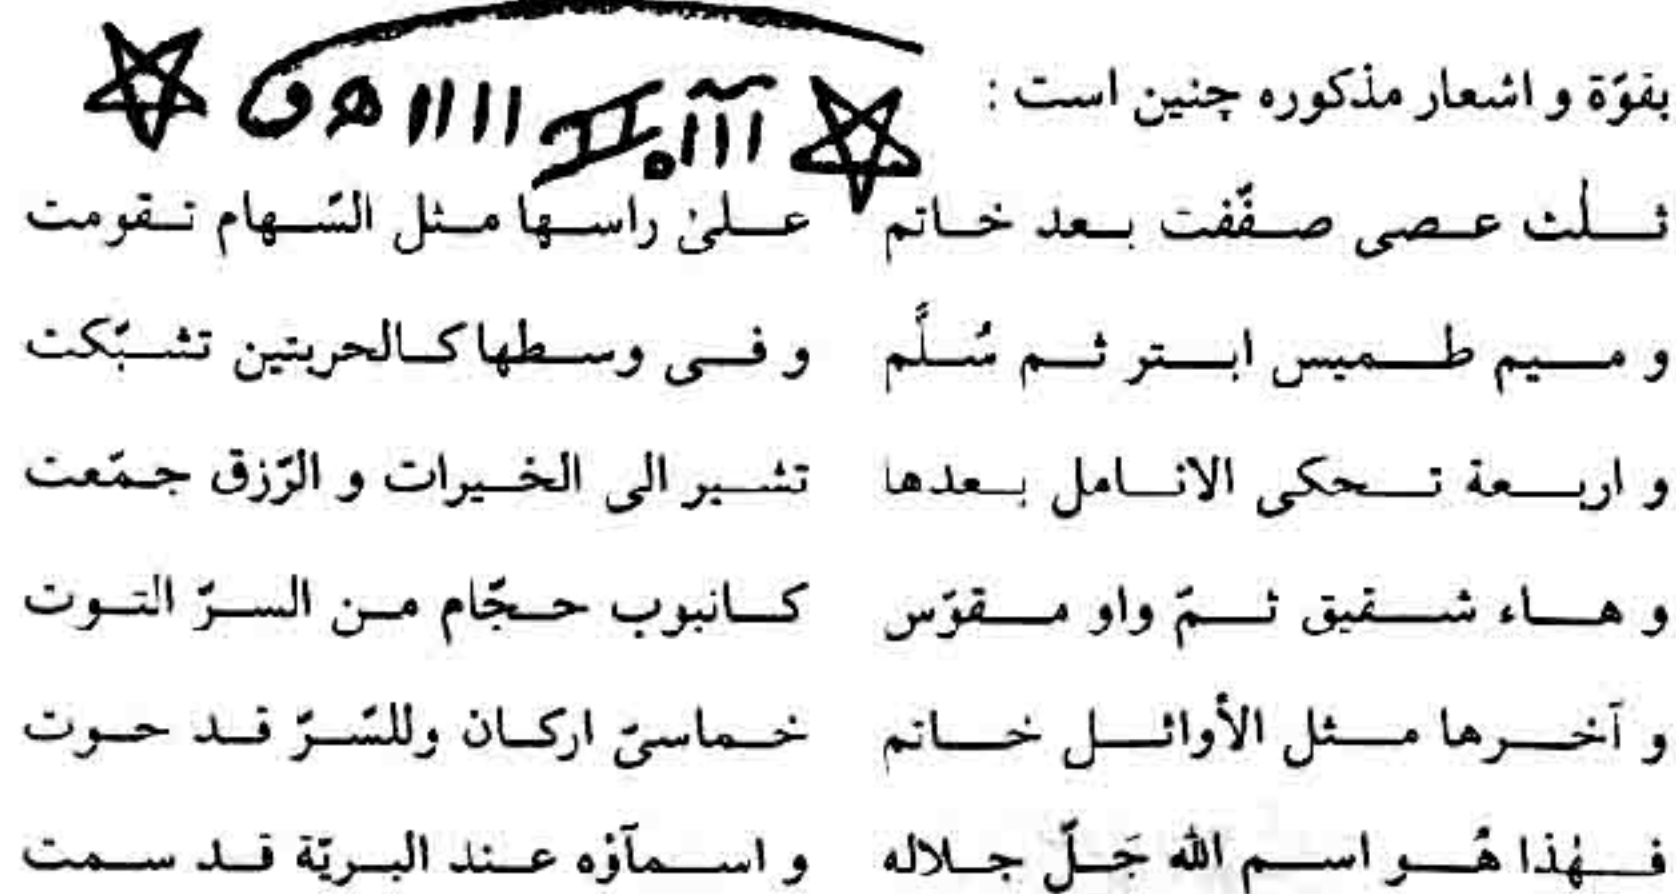 بقوّة و اشعار مذكوره چنين است :
ثلٰث عصى صفّفت بعد خاتم علىٰ راسها مثل السّهام تقومت
و ميم طميس ابتر ثم سُلَّم و فى وسطها كالحربتين تشبّكت
و اربعة تحكى الانامل بعدها تشير الى الخيرات و الرّزق جمّعت
و هاء شقيق ثمّ واو مقوّس كانبوب حجّام من السرّ التوت
و آخرها مثل الأوائل خاتم خماسىّ اركان وللسّرّ قد حوت
فهٰذا هُو اسم الله جَلّ جلاله و اسمآؤه عند البريّة قد سمت